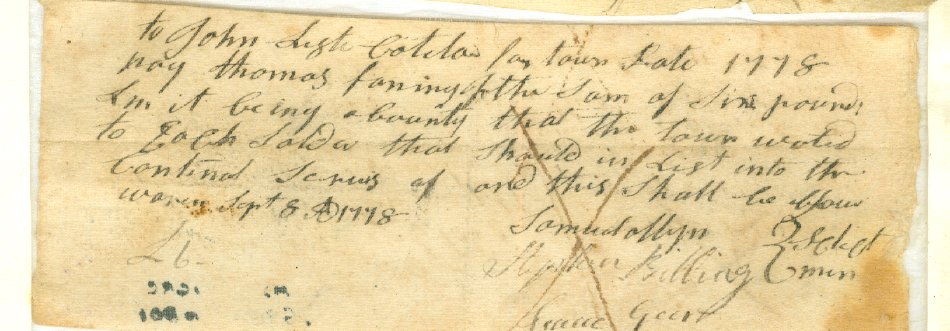 to John Ligh Colila for town Rate 1778
pay thomas faning the Sum of Six pound
Lm it being a bounty that the town voted
to Each Solder that Should in List into the
Continal Servis of and this Shall be your
woren Sept 8 AD 1778
Samuel allyn Select
Stephen Billing men
Isaac Geer
L6-